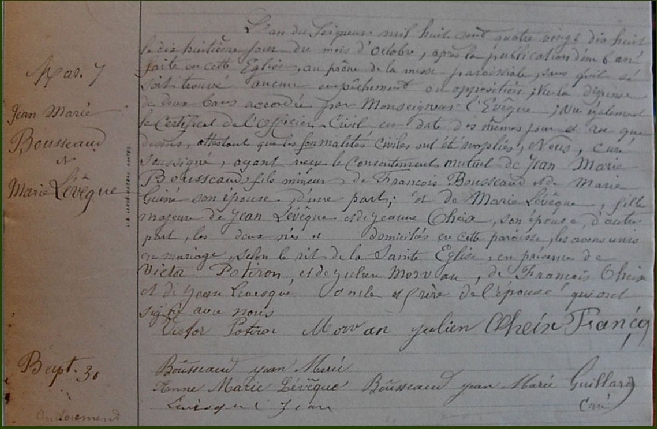 L'an du Seigneur mil huit cent quatre vingt dix huit
le dix huitième jour du mois d'Octobre, après la publication d'un ban
faite en cette Eglise, au prône de la messe paroissiale, sans qu'il se
soit trouvé aucun empêchement ou opposition; Vu la dispense
de deux bans accordée par Monseigneur l'Evêque; Vu également
le Certificat de l'Officier Civil en date des mêmes jour et an que
dessus, attestant que les formalités civiles ont été remplies, Nous, curé
soussigné, ayant reçu le Consentement mutuel de Jean Marie
Bousseaud, fils mineur de François Bousseaud et de Marie
Guéné son épouse, d'une part; et de Marie Levêque, fille
majeure de Jean Levêque et de Jeanne Cheix, son épouse, d'autre
part, les deux nés et domiciliés en cette paroisse, les avons unis
en mariage, selon le rit de la Sainte Eglise, en présence de
Victor Potiron, et de Julien Morvan, de François Cheix
et de Jean Levesque, oncle et frère de l'épouse qui ont
signé avec nous
Victor Potiron Morvan Julien Cheix Franço
Mar. 7
Jean Marie
Bousseaud
et
Marie Levêque
Bousseaud Jean Marie
Anne Marie Levêque Bousseaud Jean Marie Guillard
Levesque Jean Curé
Bapt. 31